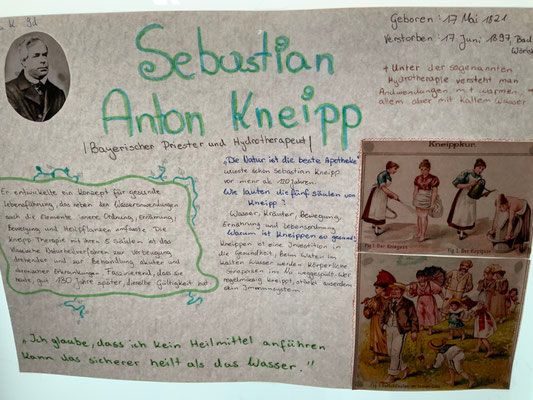 Geboren: 17 Mai 1821
Verstorben: 17 Juni 1897, Bad
Sebastian
Anton Kneipp
| Bayerischer Priester und Hydrotherapeut |
+ Unter der sogenannten
Hydrotherapie versteht man
Andwendungen mit warmen,
allem aber mit kaltem Wasser
Er entwickelte ein Konzept für gesunde
Lebensführung, das neben den Wasseranwendungen
auch die Elemente innere Ordnung, Ernährung,
Bewegung und Heilpflanzen umfasste. Die
Kneipp Therapie mit ihren 5 Säulen ist das
klassische Naturheilverfahren zur Vorbeugung,
und zur Behandlung akuter und
chronischer Erkrankungen. Faszinierend, dass sie
heute, gut 130 Jahre später, dieselbe Gültigkeit hat
„Die Natur ist die beste Apotheke"
wusste schon Sebastian Kneipp
vor mehr als Jahren.
Wie lauten die fünf Säulen von
Kneipp?
Wasser, Kräuter, Bewegung,
Ernährung und Lebensordnung
Warum ist Kneippen so gesund?
Kneippen ist eine Investition in
die Gesundheit, beim Waten im
kalten Wasser werden körperliche
Stresspegel ins Nu weggespült. Wer
regelmäßig kneippt, stärkt ausserdem
sein Immunsystem
Kneippkur.
Fig. 1. Der Knieguss
„Ich glaube, dass ich kein Heilmittel anführen
kann das sicherer heilt als das Wasser."